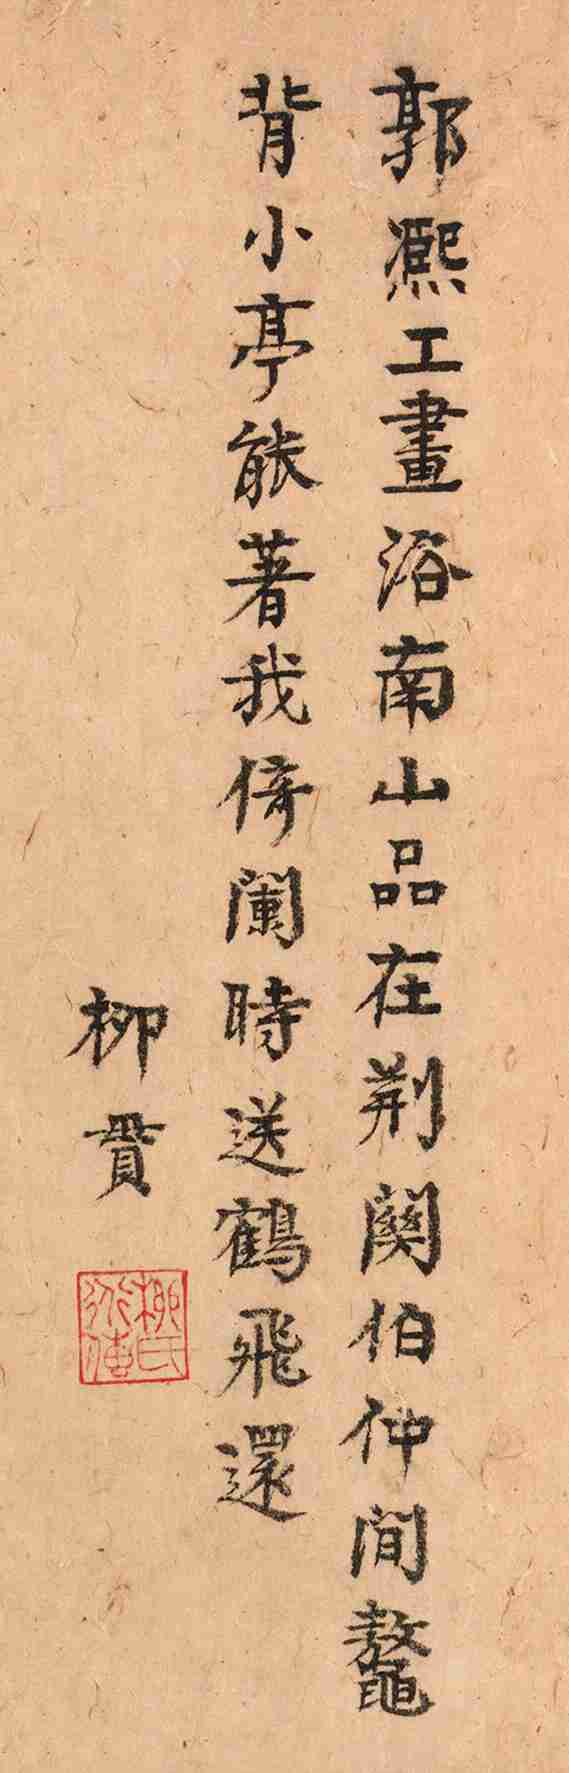 郭熙工畫洛南山品在荆關伯仲間鼇
背小亭能著我倚闌時送鶴飛還
柳貫
柳氏